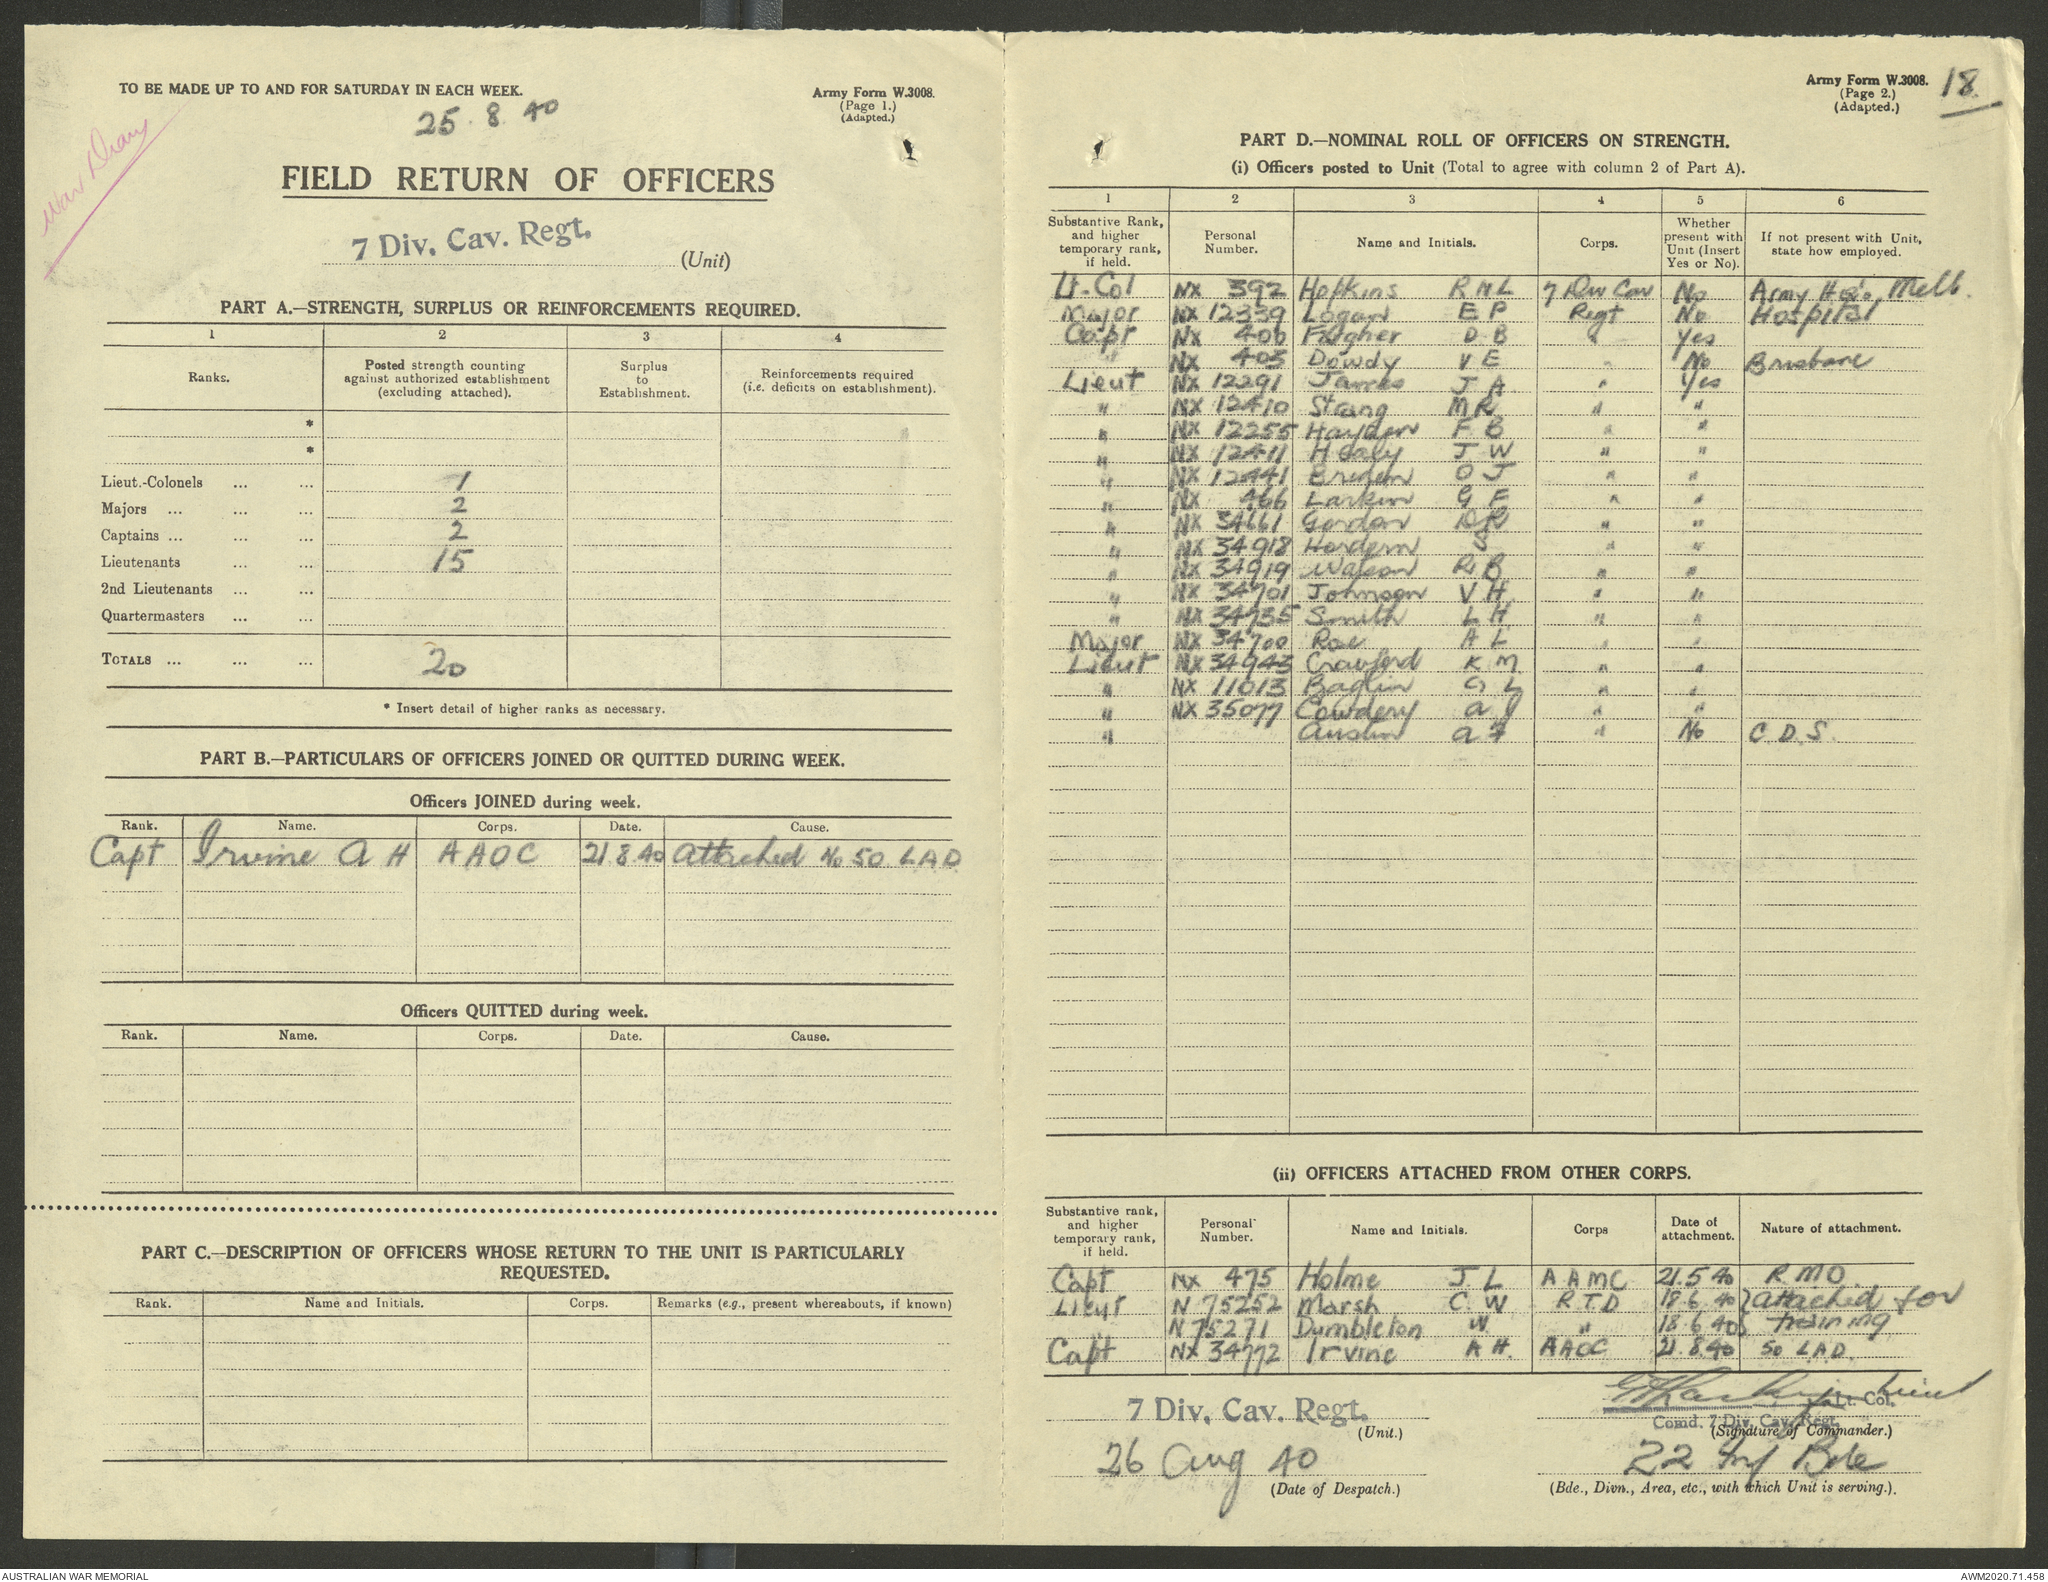 War Diary
TO BE MADE UP TO AND FOR SATURDAY IN EACH WEEK.
25.8.40
Army Form W.3008.
(Page 1.)
(Adapted.)
FIELD RETURN OF OFFICERS
7 Div. Cav. Regt. (Unit)
PART A.—STRENGTH, SURPLUS OR REINFORCEMENTS REQUIRED.
1 2 3 4
Ranks. Posted strength counting against authorized establishment (excluding attached). Surplus to Establishment. Reinforcements required (i.e. deficits on establishment).
*
*
Lieut.-Colonels ... ... 1
Majors ... ... ... 2
Captains ... ... ... 2
Lieutenants ... ... 15
2nd Lieutenants ... ...
Quartermasters ... ...
TOTALS ... ... ... 20
* Insert detail of higher ranks as necessary.
PART B.—PARTICULARS OF OFFICERS JOINED OR QUITTED DURING WEEK.
Officers JOINED during week.
Rank. Name. Corps. Date. Cause.
Capt Irvine A H AAOC 21 8 40 attached No 50 L.A.D.
Officers QUITTED during week.
Rank. Name. Corps. Date. Cause.
PART C.—DESCRIPTION OF OFFICERS WHOSE RETURN TO THE UNIT IS PARTICULARLY
REQUESTED.
Rank. Name and Initials. Corps. Remarks (e.g., present whereabouts, if known)
Army Form W.3008.
(Page 2.)
(Adapted.)
18.
PART D.—NOMINAL ROLL OF OFFICERS ON STRENGTH.
(i) Officers posted to Unit (Total to agree with column 2 of Part A).
1 2 3 4 5 6
Substantive Rank, and higher temporary rank, if held. Personal Number. Name and Initials. Corps. Whether present with Unit (Insert Yes or No). If not present with Unit, state how employed.
Lt.Col NX 392 Hopkins R N L 7 Div Cav No Army Hq'o, Melb.
Major NX 12339 Logan E P Regt No Hospital
Capt NX 400 D B " Yes
" NX 403 Dowdy V E " No Brisbane
Lieut NX 12291 James J A " Yes
" NX 12410 Strang M R " "
" NX 12255 Hayden F B " "
" NX 12411 Healy J W " "
" NX 12441 O J " "
" NX 466 Larkin G F " "
" NX 34661 Gordon D R " "
" NX 34918 Hordern S " "
" NX 34919 Watson R B " "
" NX 34701 Johnson V H " "
" NX 34735 Smith L H " "
Major NX 34700 Rae A L " "
Lieut NX 34943 Crawford K M " "
" NX 11013 Baglin G L " "
" NX 35077 Cowdery A J " "
" Austin A F " No C.D.S.
(ii) OFFICERS ATTACHED FROM OTHER CORPS.
Substantive rank, and higher temporary rank, if held. Personal Number. Name and Initials. Corps Date of attachment. Nature of attachment.
Capt NX 475 Holme J. L A A M C 21.5.40 R M O
Lieut N 75252 Marsh C. W R T D 18.6.40 } attached for
" N 75271 Dumbleton W " 18.6.40 } training
Capt NX 34772 Irvine A H. AAOC 21.8.40 50 L.A.D.
7 Div. Cav. Regt.
(Unit.)
26 Aug 40
(Date of Despatch.)
G F Larkin Lieut
Lt. Col.
Comd. 7 Div. Cav. Regt.
(Signature of Commander.)
22 Inf Bde
(Bde., Divn., Area, etc., with which Unit is serving.).
AUSTRALIAN WAR MEMORIAL
AWM2020.71.458